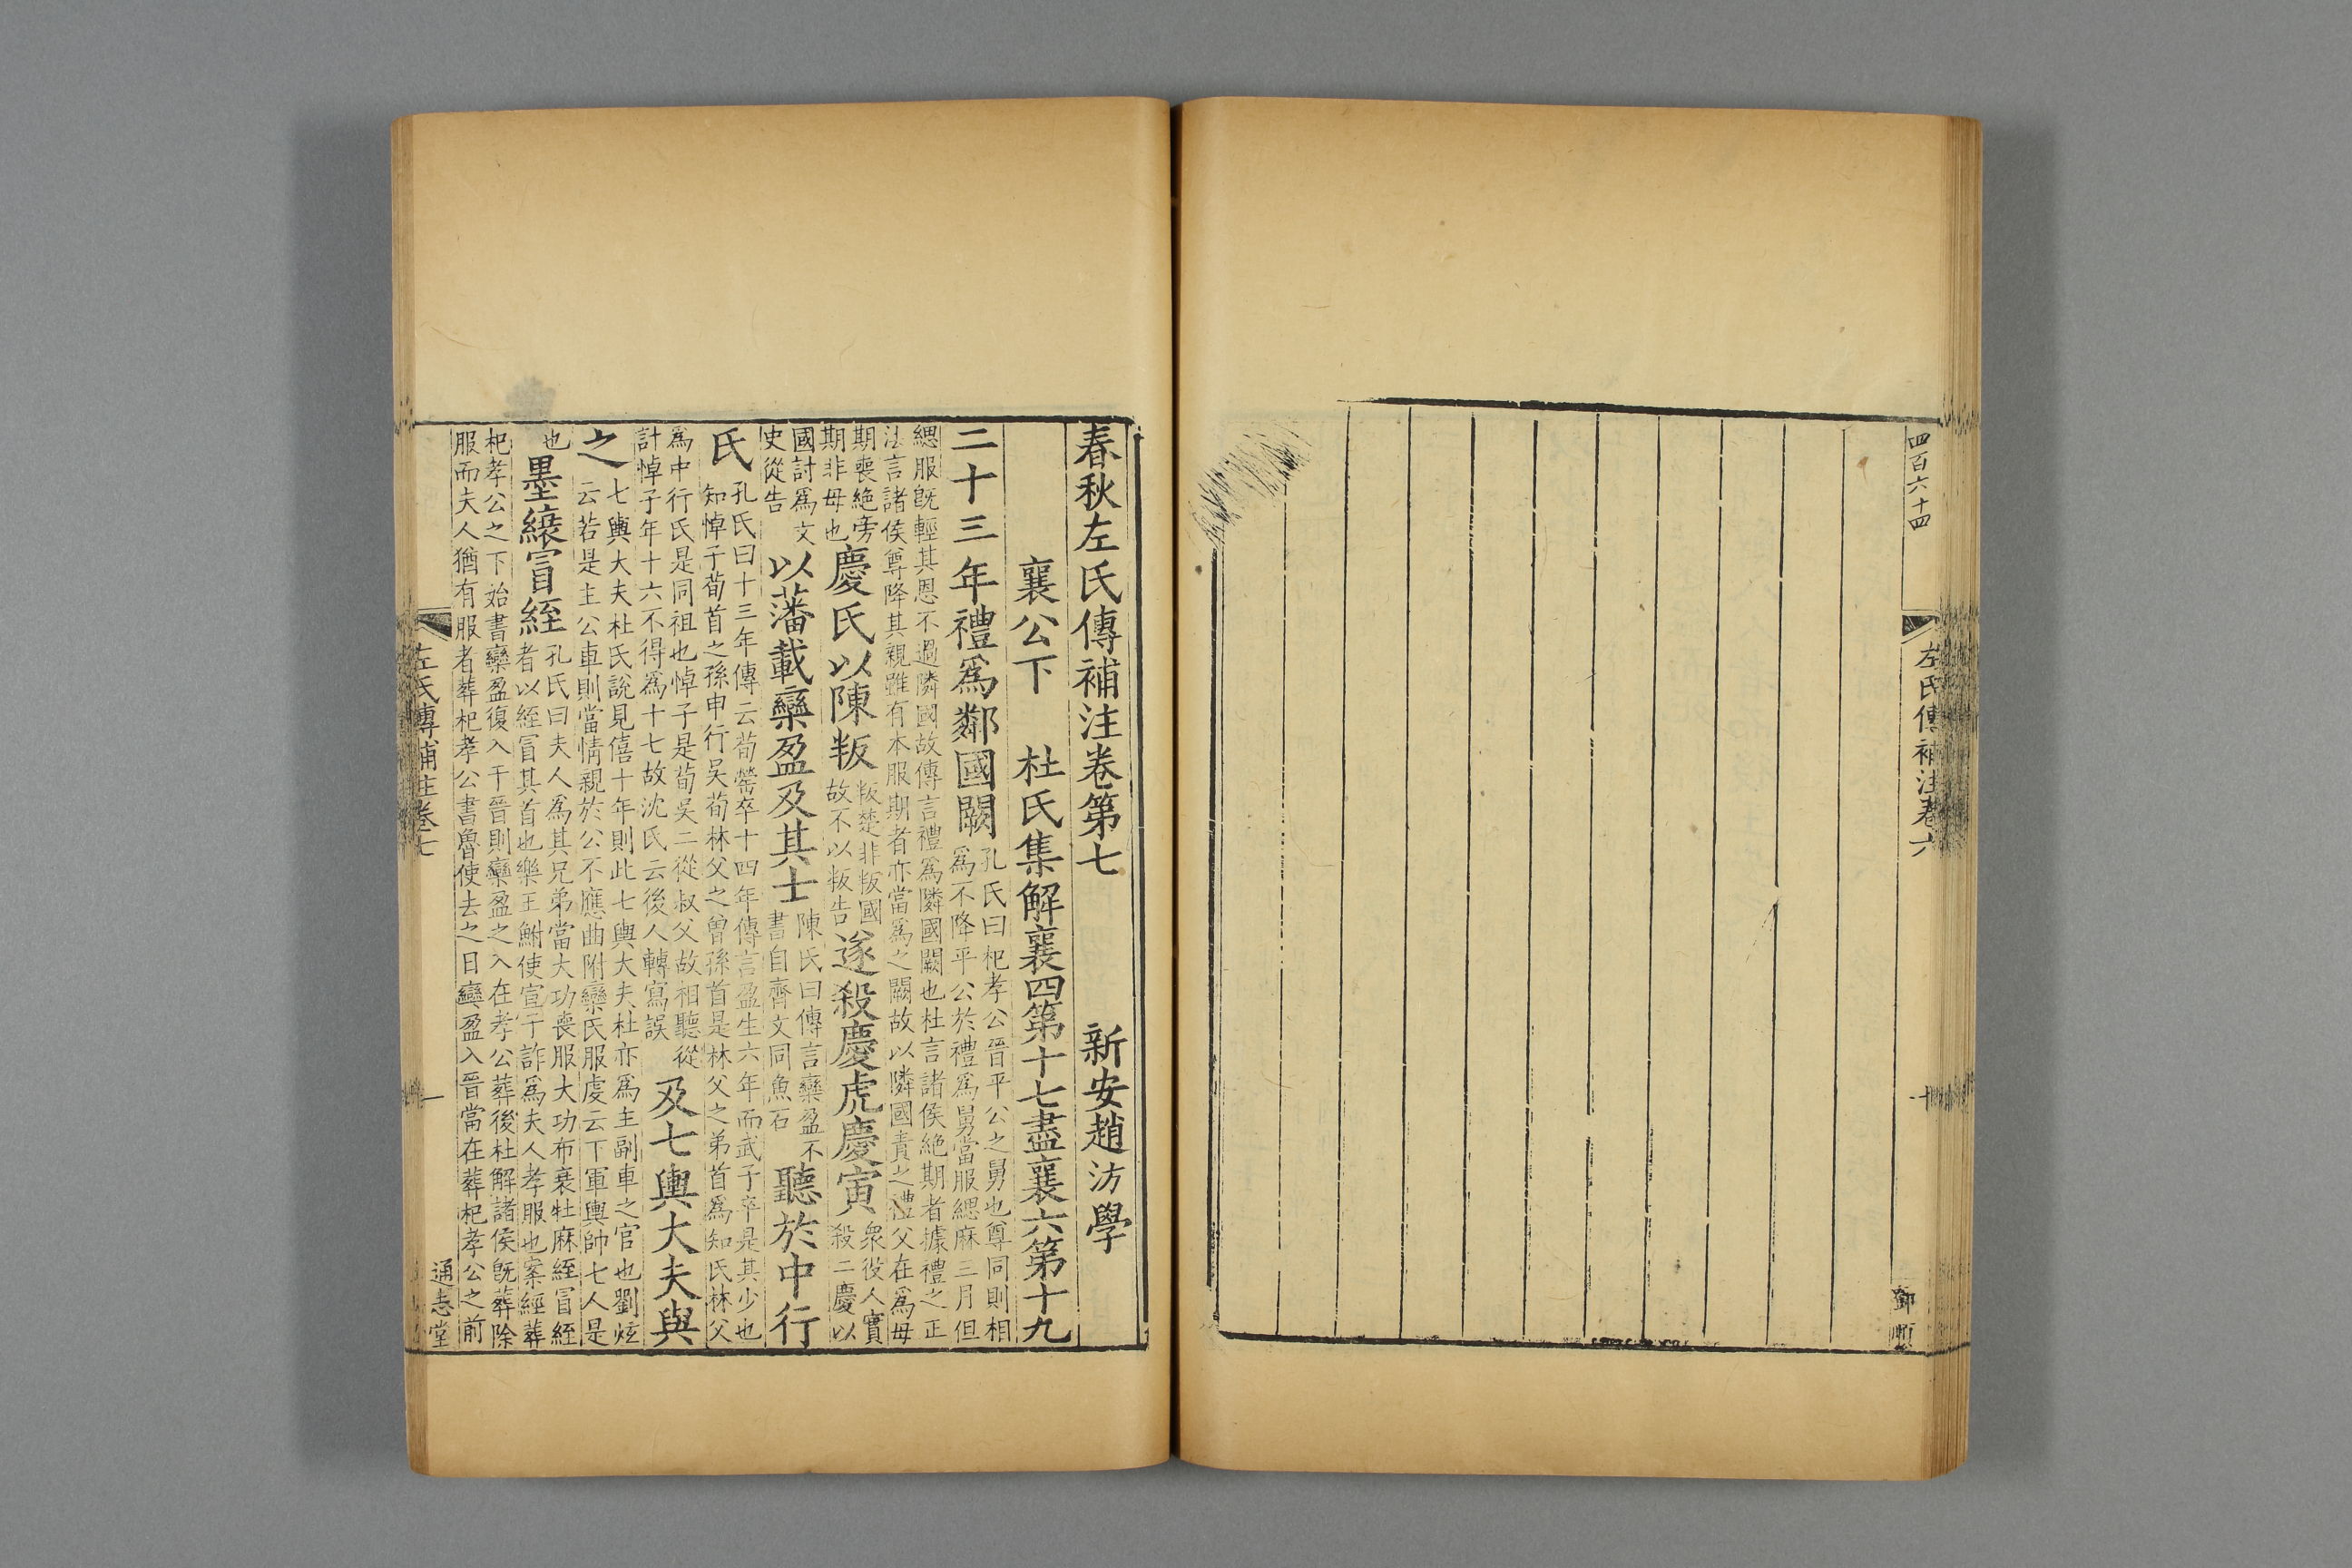 四百六十四
左氏傳補注卷六
十
鄧順
春秋左氏傳補注卷第七
新安趙汸學
襄公下
杜氏集解襄四第十七盡襄六第十九
二十三年禮爲鄰國闕
孔氏曰杞孝公晉平公之舅也尊同則相
爲不降平公於禮爲舅當服緦麻三月但
緦服旣輕其恩不過隣國故傳言禮爲隣國闕也杜言諸侯絶期者據禮之正
法言諸侯尊降其親雖有本服期者亦當爲之闕故以隣國責之禮父在爲母
期喪絶旁
期非母也
慶氏以陳叛
叛楚非叛國
故不以叛告
遂殺慶虎慶寅
衆役人實
殺二慶以
國討爲文
史從告
以藩載欒盈及其士
陳氏曰傳言欒盈不
書自齊文同魚石
聽於中行
氏
孔氏曰十三年傳云荀罃卒十四年傳言盈生六年而武子卒是其少也
知悼子荀首之孫中行吳荀林父之曾孫首是林父之弟首爲知氏林父
爲中行氏是同祖也悼子是荀吳二從叔父故相聽從
計悼子年十六不得爲十七故沈氏云後人轉寫誤
及七輿大夫與
之
七輿大夫杜氏說見僖十年則此七輿大夫杜亦爲主副車之官也劉炫
云若是主公車則當情親於公不應曲附欒氏服虔云下軍輿帥七人是
也
墨縗冐絰
孔氏曰夫人爲其兄弟當大功喪服大功布衰牡麻絰冒絰
者以絰冐其首也樂王鮒使宣子詐爲夫人孝服也案經葬
杞孝公之下始書欒盈復入于晉則欒盈之入在孝公葬後杜解諸侯旣葬除
服而夫人猶有服者葬杞孝公書魯使去之日欒盈入晉當在葬杞孝公之前
左氏傳補注卷七
一
通志堂